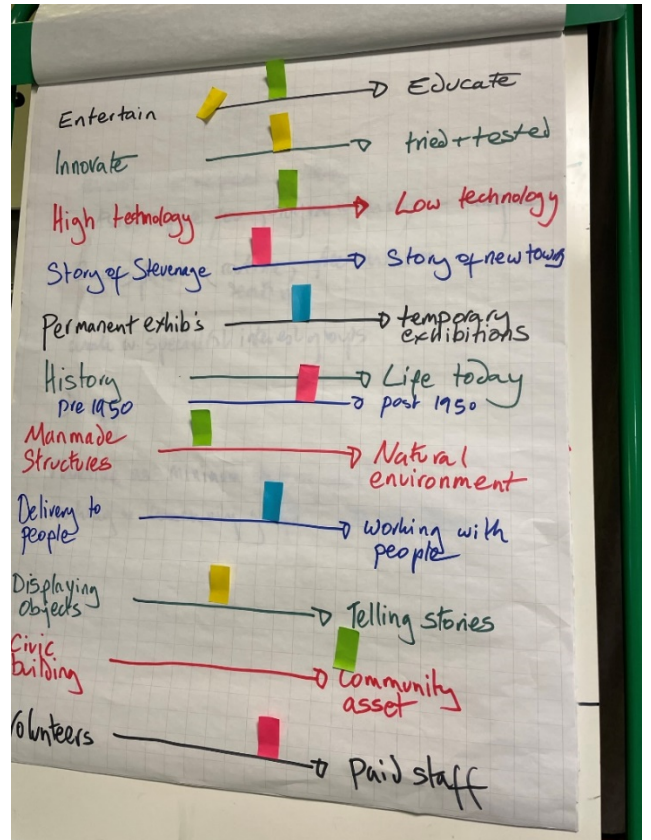 Entertain Educate
Innovate tried + tested
High technology Low technology
Story of Stevenage Story of new towns
Permanent exhib's temporary
exhibitions
History Life today
pre 1950 post 1950
Manmade
Structures Natural
environment
Delivery to
people working with
people
Displaying
objects Telling stories
Civic
building Community
asset
Volunteers Paid staff